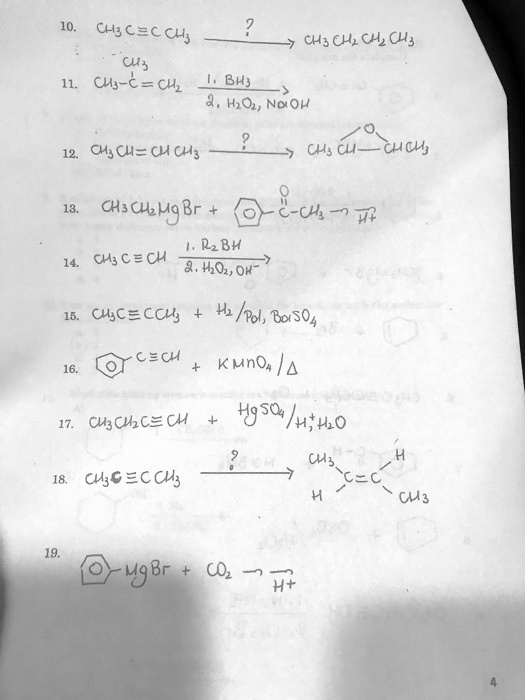 10. CH3C≡CCH3 ? → CH3CH2CH2CH3
CH3
11. CH3-C=CH2 1. BH3 → 2. H2O2, NaOH
12. CH3CH=CHCH3 ? → CH3CH—CHCH3 O
13. CH3CH2MgBr + C-CH3 O → → H+
14. CH3C≡CH 1. R2BH → 2. H2O2, OH-
15. CH3C≡CCH3 + H2/Pd, BaSO4
16. C≡CH + KMnO4/Δ
17. CH3CH2C≡CH + HgSO4/H+, H2O
18. CH3C≡CCH3 ? → CH3 H C=C H CH3
19. MgBr + CO2 → → H+
4